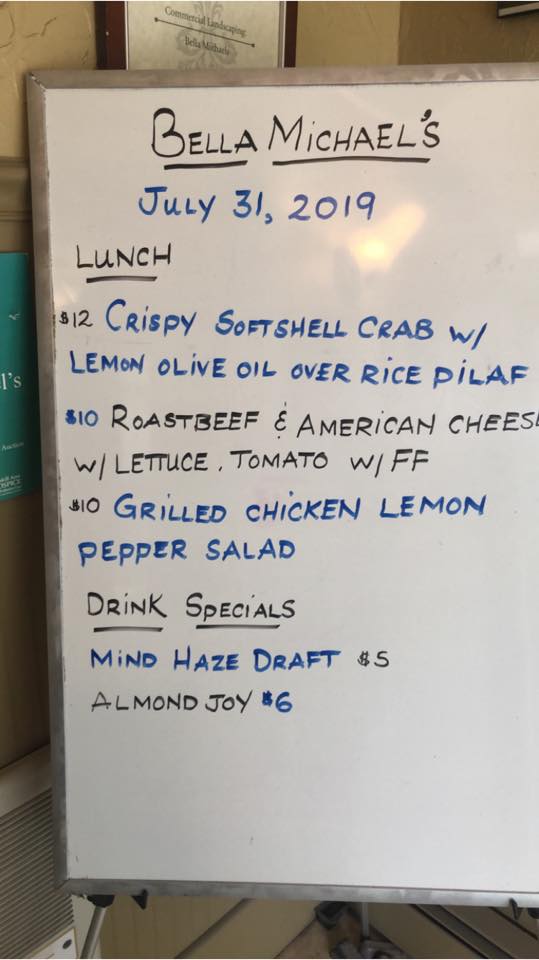 Commercial Landscaping
Bella Michaels
BELLA MICHAEL'S
JULY 31, 2019
LUNCH
$12 CRISPY SOFTSHELL CRAB W/
LEMON OLIVE OIL OVER RICE PILAF
$10 ROASTBEEF & AMERICAN CHEESE
W/ LETTUCE, TOMATO W/ FF
$10 GRILLED CHICKEN LEMON
PEPPER SALAD
DRINK SPECIALS
MIND HAZE DRAFT $5
ALMOND JOY $6
l's
Auction